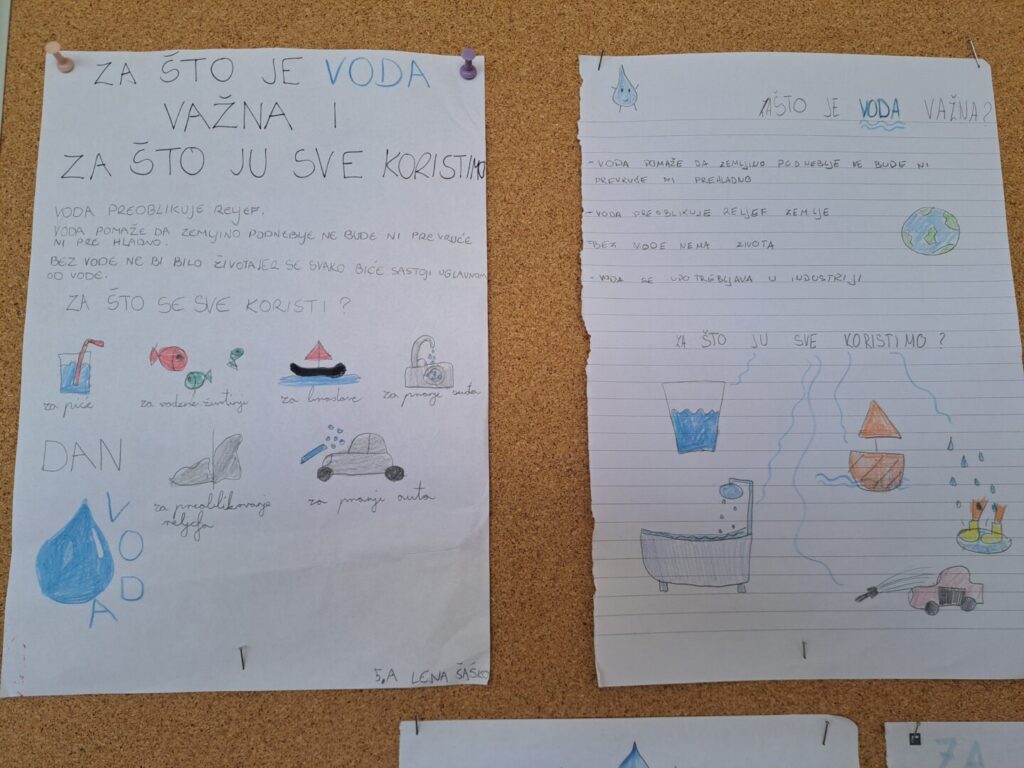 ZA ŠTO JE VODA
VAŽNA I
ZA ŠTO JU SVE KORISTIMO
VODA PREOBLIKUJE RELJEF.
VODA POMAŽE DA ZEMLJINO PODNEBLJE NE BUDE NI PREVRUĆE
NI PRE HLADNO.
BEZ VODE NE BI BILO ŽIVOTA JER SE SVAKO BIĆE SASTOJI UGLAVNOM
OD VODE.
ZA ŠTO SE SVE KORISTI ?
za piće
za vodene životinje
za brodove
za pranje suđa
DAN
VODA
za preoblikovanje
reljefa
za pranje auta
5.A LENA ŠAŠKO
ZAŠTO JE VODA VAŽNA?
- VODA POMAŽE DA ZEMLJINO PODNEBLJE NE BUDE NI
PREVRUĆE NI PREHLADNO
- VODA PREOBLIKUJE RELJEF ZEMLJE
- BEZ VODE NEMA ŽIVOTA
- VODA SE UPOTREBLJAVA U INDUSTRIJI
ZA ŠTO JU SVE KORISTIMO ?
ZA